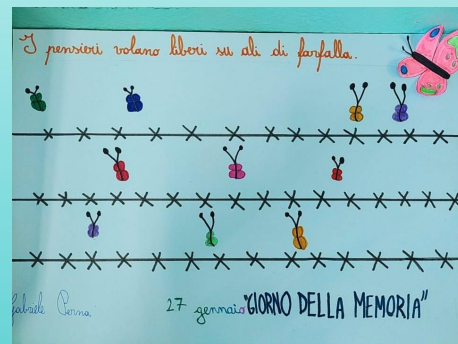 I pensieri volano liberi su ali di farfalla.
Gabriele Perna
27 gennaio "GIORNO DELLA MEMORIA"